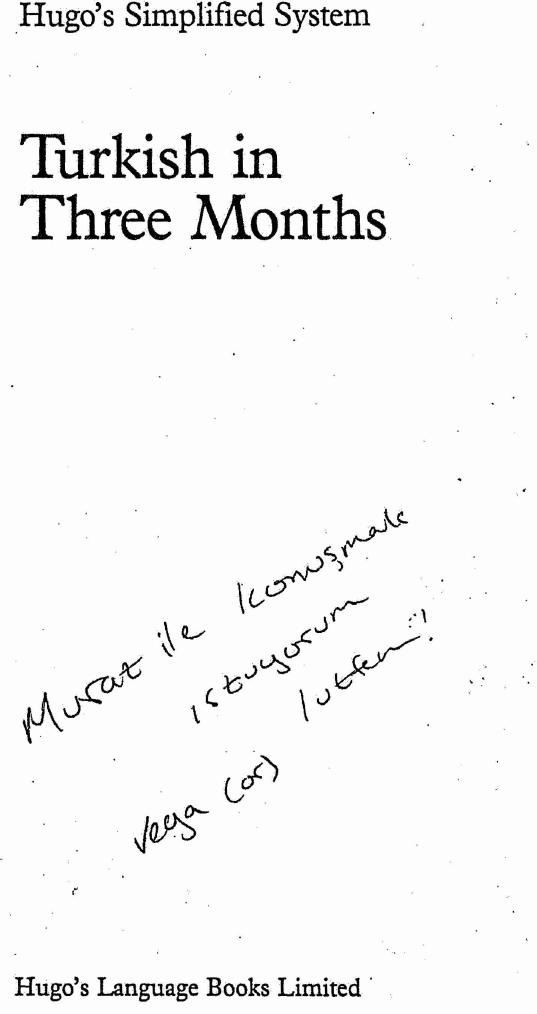 Hugo's Simplified System
Turkish in
Three Months
Murat ile konuşmak
istuyorum
lutfen!
veya (or)
Hugo's Language Books Limited